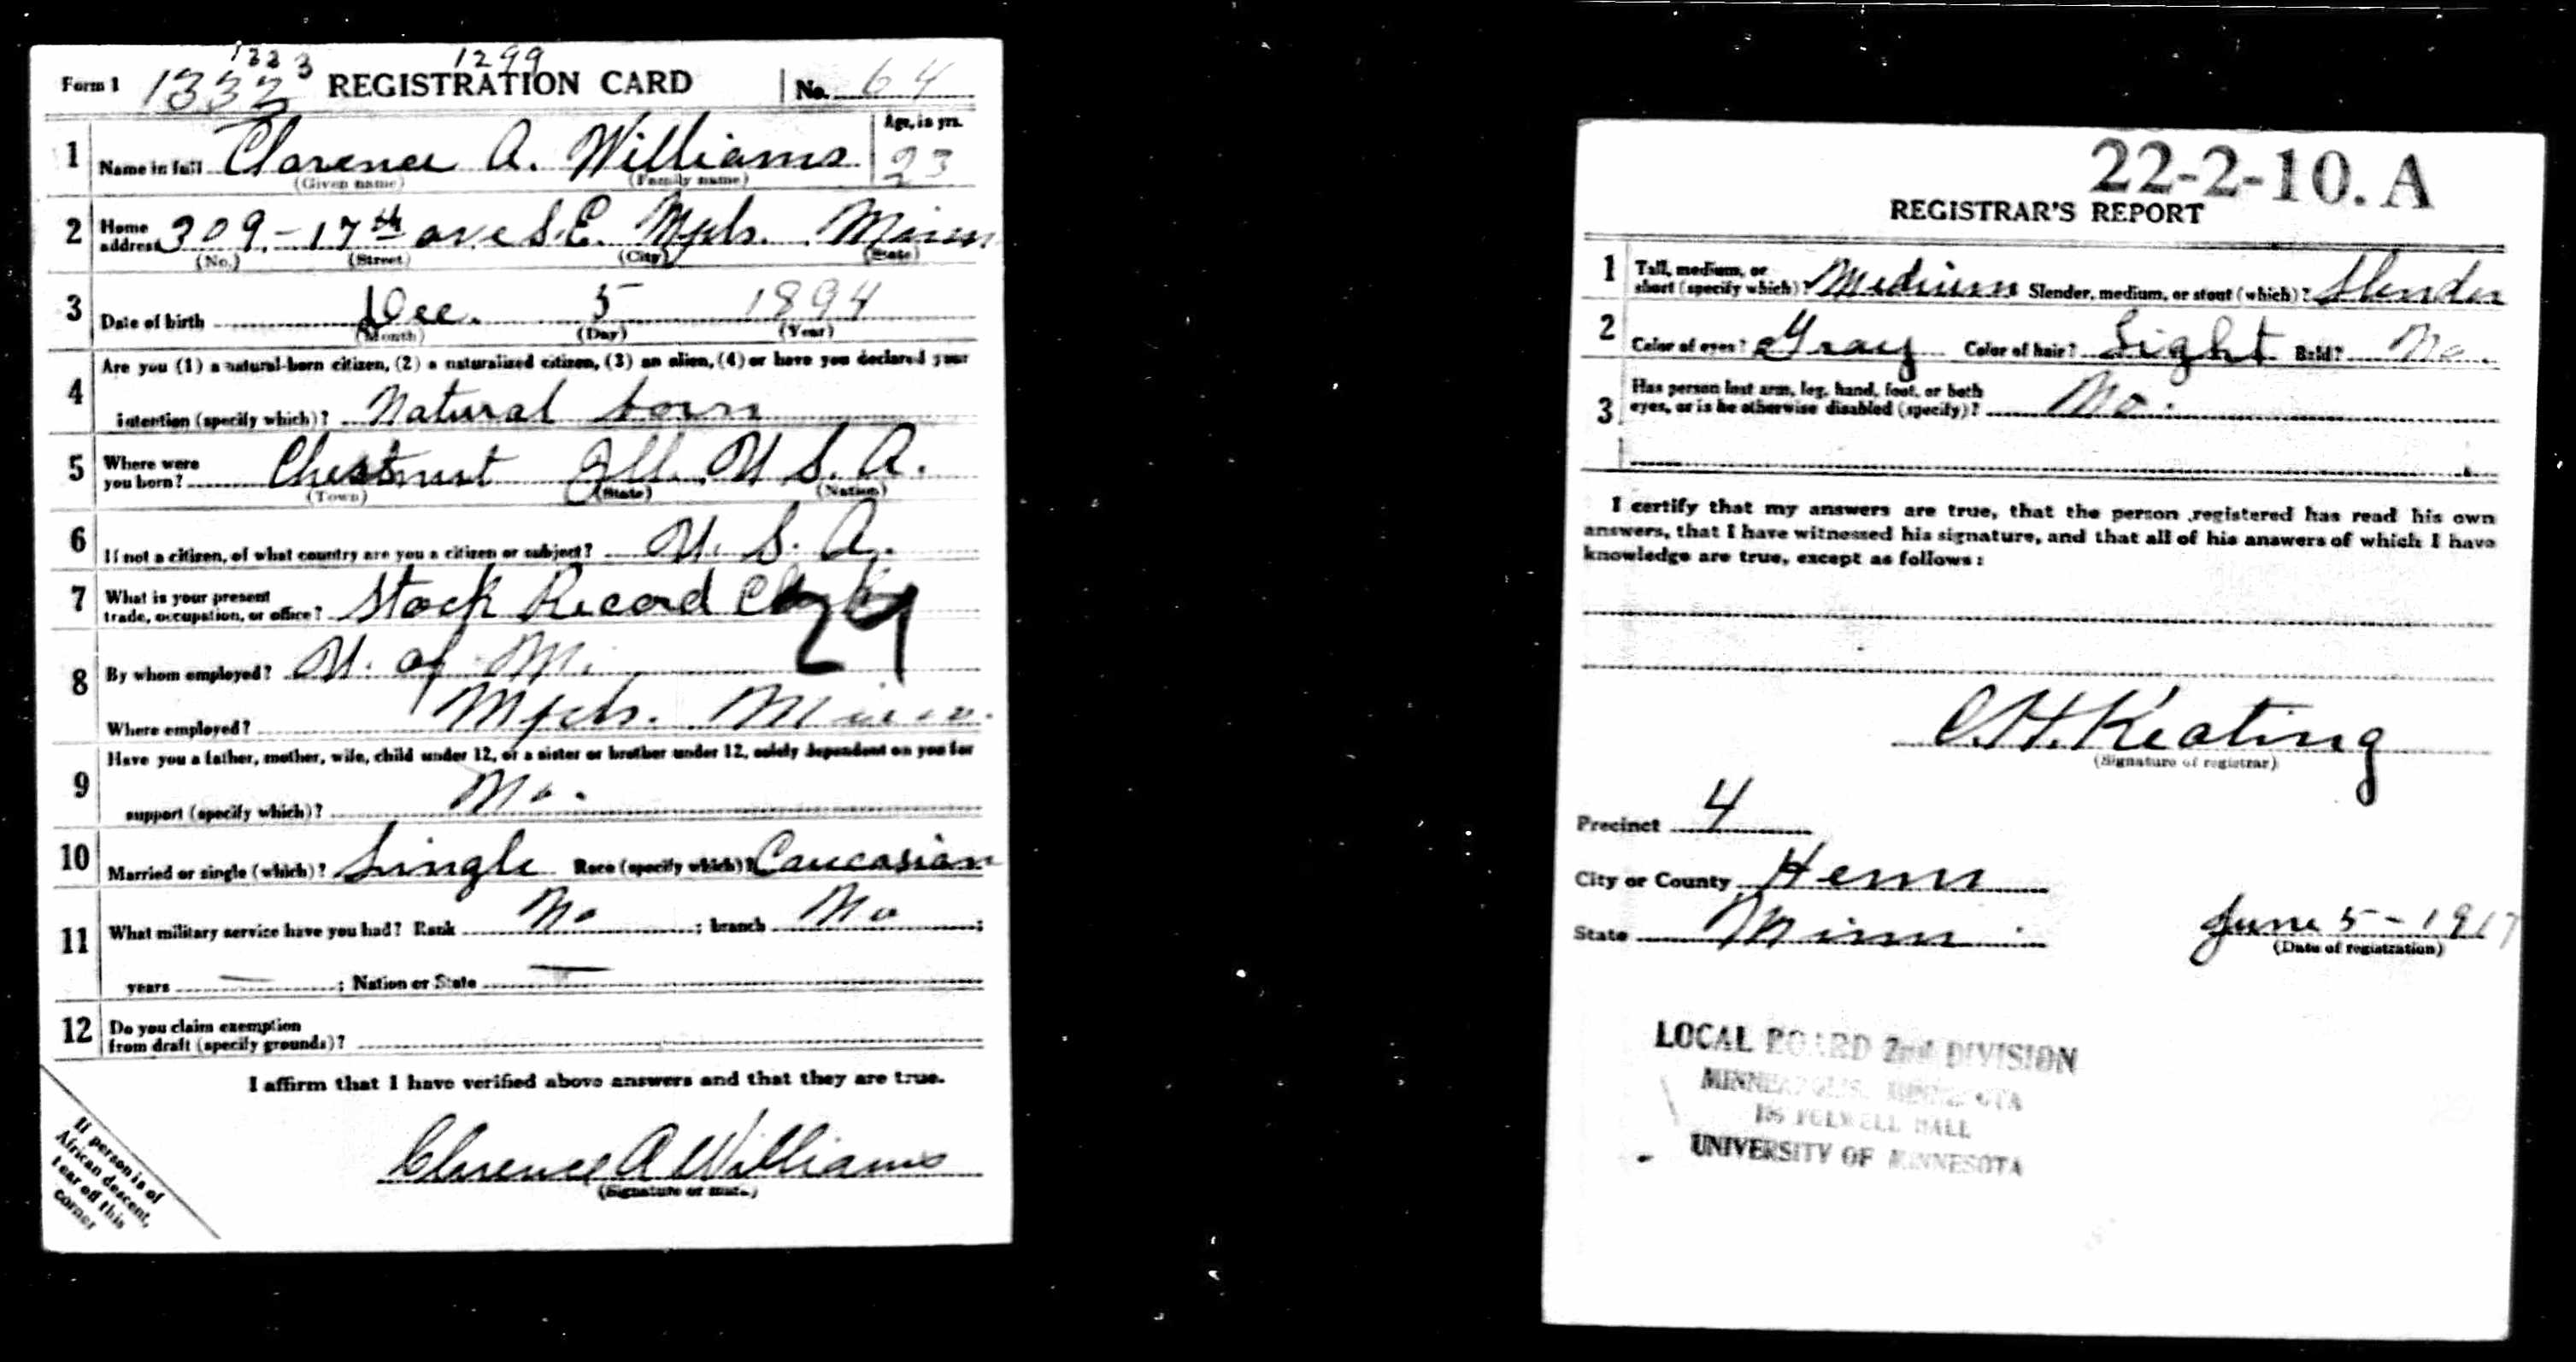 1333 1299
Form 1 1332 REGISTRATION CARD No. 64
1 Name in full Clarence A. Williams Age, in yrs. 23
(Given name) (Family name)
2 Home address 309.-17th ave S.E. Mpls. Minn
(No.) (Street) (City) (State)
3 Date of birth Dec. 5 1894
(Month) (Day) (Year)
4 Are you (1) a natural-born citizen, (2) a naturalized citizen, (3) an alien, (4) or have you declared your
intention (specify which)? Natural born
5 Where were you born? Chestnut Ill. U.S.A.
(Town) (State) (Nation)
6 If not a citizen, of what country are you a citizen or subject? U.S.A.
7 What is your present trade, occupation, or office? Stock Record Clerk
29
8 By whom employed? U. of M.
Where employed? Mpls. Minn.
9 Have you a father, mother, wife, child under 12, or a sister or brother under 12, solely dependent on you for
support (specify which)? No.
10 Married or single (which)? Single Race (specify which)? Caucasian
11 What military service have you had? Rank No ; branch No ;
years — ; Nation or State —
12 Do you claim exemption
from draft (specify grounds)?
I affirm that I have verified above answers and that they are true.
Clarence A Williams
(Signature or mark)
If person is of
African descent,
tear off this
corner
22-2-10. A
REGISTRAR'S REPORT
1 Tall, medium, or short (specify which)? Medium Slender, medium, or stout (which)? Slender
2 Color of eyes? Gray Color of hair? Light Bald? No.
3 Has person lost arm, leg, hand, foot, or both
eyes, or is he otherwise disabled (specify)? No.
I certify that my answers are true, that the person registered has read his own
answers, that I have witnessed his signature, and that all of his answers of which I have
knowledge are true, except as follows:
C.H. Keating
(Signature of registrar)
Precinct 4
City or County Henn
State Minn. June 5-1917
(Date of registration)
LOCAL BOARD 2nd DIVISION
MINNEAPOLIS, MINNESOTA
FOLWELL HALL
UNIVERSITY OF MINNESOTA